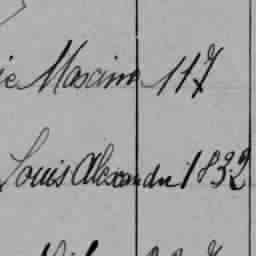 ie Maxim 117
Louis Alexandre 1832